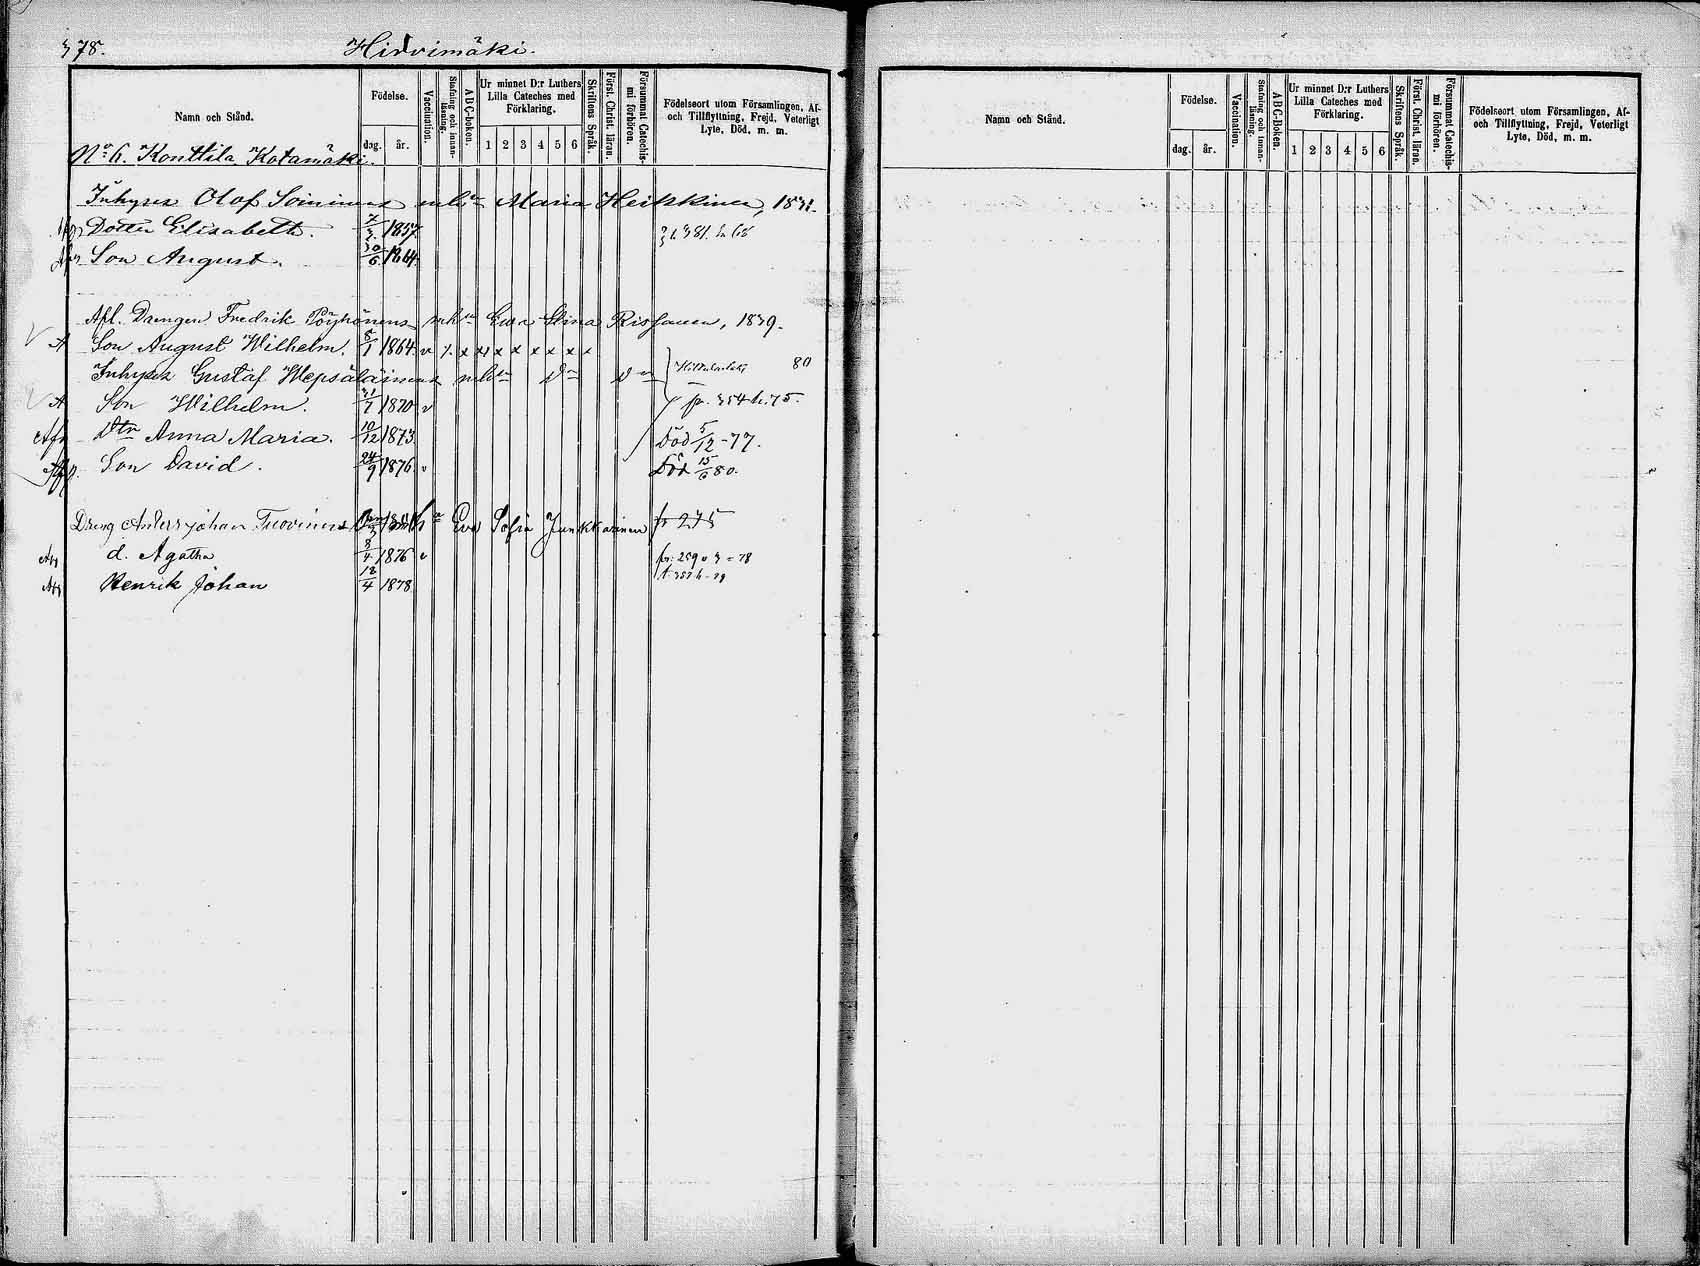 378. Hirvimäki.
Namn och Stånd.
Födelse.
dag. år.
Vaccination.
Stafning och innanläsning.
ABC-boken.
Ur minnet D:r Luthers Lilla Cateches med Förklaring.
1 2 3 4 5 6
Skriftens Språk.
Först. Christ. läran.
Försummat Catechismi förhören.
Födelseort utom Församlingen, Af- och Tillflyttning, Frejd, Veterligt Lyte, Död. m. m.
No 6. Konttila Kotamäki.
Inhyses Olof Soininens enka Maria Heikkinen, 1831.
Dotter Elisabeth. 1857
Son August. 30/6 1864.
Afl. Drengen Fredrik Pöyhönens enka Eva Stina Rissanen, 1839.
A Son August Wilhelm. 8/1 1864. v x x x x x x x x
Inhyses Gustaf Wepsäläinens 80
A Son Wilhelm. 1870 v fr. 354 h. 75.
Afs Dtr Anna Maria. 10/12 1873 Död 5/12 -77.
Son David. 24/9 1876 v Död 15/6 80.
Dreng Anders Johan Tuovinens Eva Sofia Junkkarinen fr 275
d. Agatha 8/4 1876 v fr. 259 v 3 = 78
Henrik Johan 12/4 1878 t. 357 h - 79
Namn och Stånd.
Födelse.
dag. år.
Vaccination.
Stafning och innanläsning.
ABC-Boken.
Ur minnet D:r Luthers Lilla Cateches med Förklaring.
1 2 3 4 5 6
Skriftens Språk.
Först. Christ. läran.
Försummat Catechismi förhören.
Födelseort utom Församlingen, Af- och Tillflyttning, Frejd, Veterligt Lyte, Död, m. m.